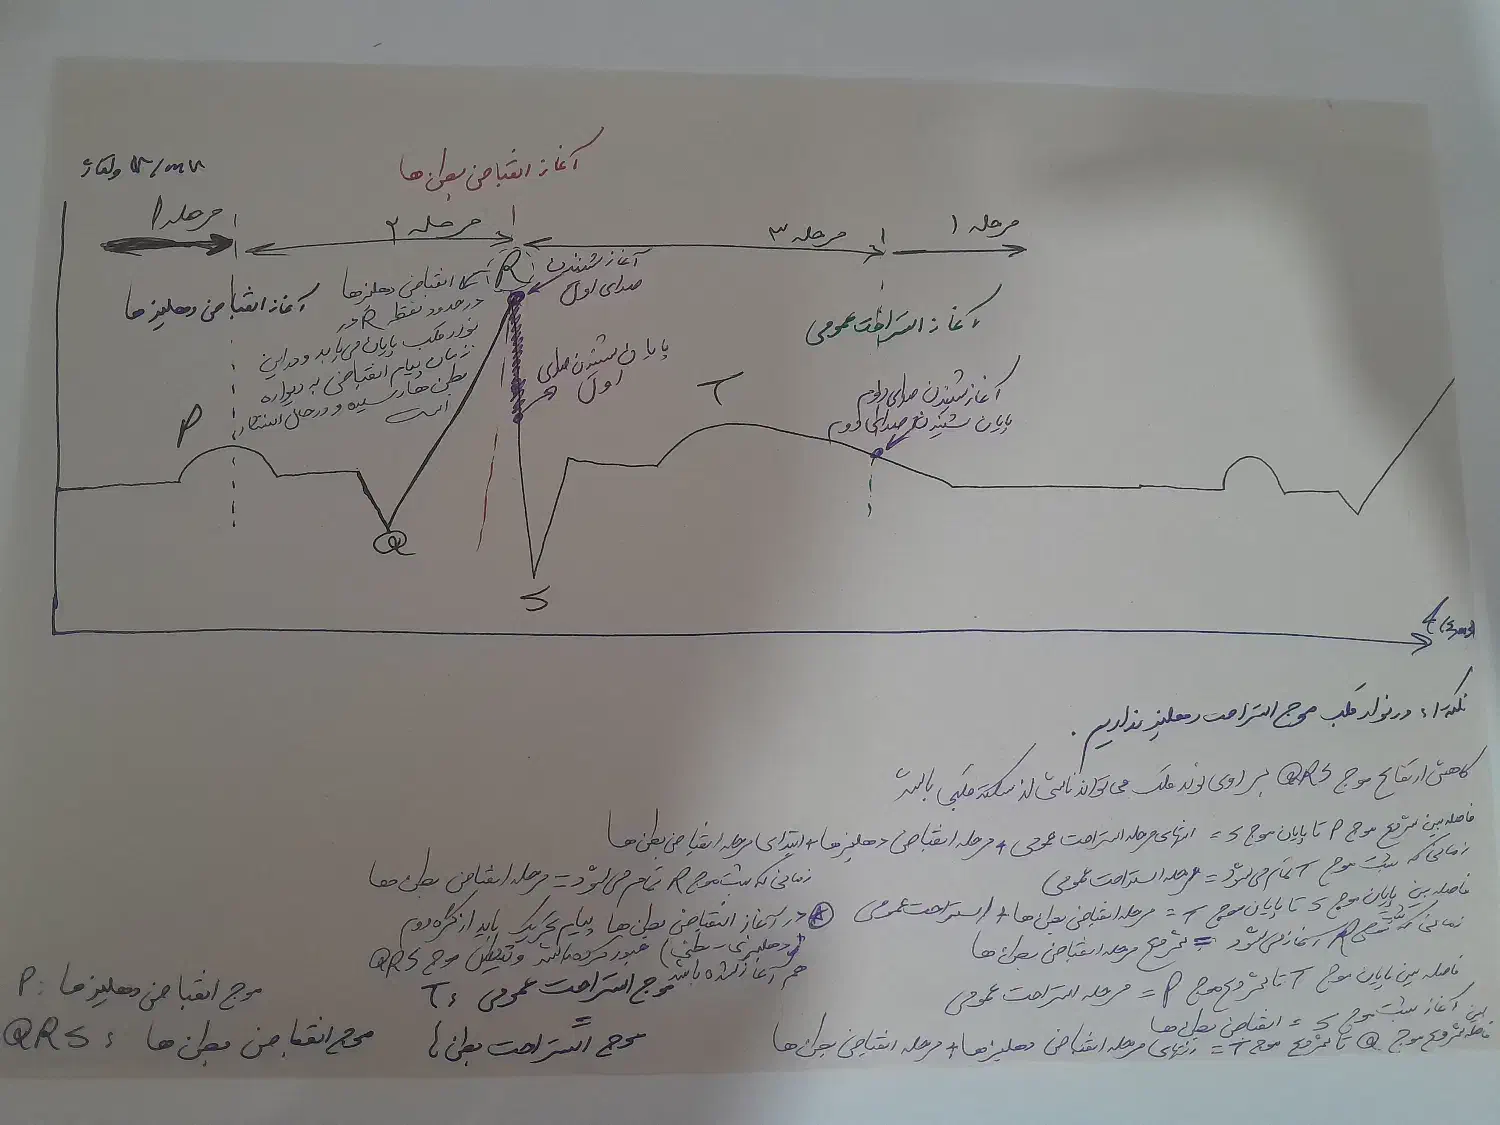 آغاز انقباض بطن ها
ولتاژ
مرحله ۱
مرحله ۲
مرحله ۳
مرحله ۱
آغاز انقباض دهلیزها
انقباض دهلیزها
در حدود نقطه R در
نوار قلب پایان می‌یابد و در این
زمان پیام انقباضی به دیواره
بطن ها رسیده و در حال انتشار
است
R
آغاز شنیدن
صدای اول
پایان شنیدن صدای
اول
آغاز استراحت عمومی
آغاز شنیدن صدای دوم
پایان شنیدن صدای دوم
P
Q
S
T
t
نکته ۱: در نوار قلب موج استراحت دهلیز نداریم.
کاهش ارتفاع موج QRS بر روی نوار قلب می‌تواند ناشی از سکته قلبی باشد
فاصله بین شروع موج P تا پایان موج S = انتهای مرحله استراحت عمومی + مرحله انقباض دهلیزها + ابتدای مرحله انقباض بطن ها
زمانی که ثبت موج T تمام می‌شود = مرحله استراحت عمومی
زمانی که ثبت موج R تمام می‌شود = مرحله انقباض بطن ها
فاصله بین پایان موج S تا پایان موج T = مرحله انقباض بطن ها + استراحت عمومی
زمانی که ثبت R آغاز می‌شود = شروع مرحله انقباض بطن ها
فاصله بین پایان موج T تا شروع موج P = مرحله استراحت عمومی
آغاز ثبت موج S = انقباض بطن ها
فاصله شروع موج Q تا شروع موج T = انتهای مرحله انقباض دهلیزها + مرحله انقباض بطن ها
در آغاز انقباض بطن ها پیام تحریک باید از گره دوم
(دهلیزی - بطنی) عبور کرده باشد و موج QRS
هم آغاز شده باشد
P: موج انقباض دهلیزها
QRS: موج انقباض بطن ها
T: موج استراحت عمومی
=
موج استراحت بطن ها